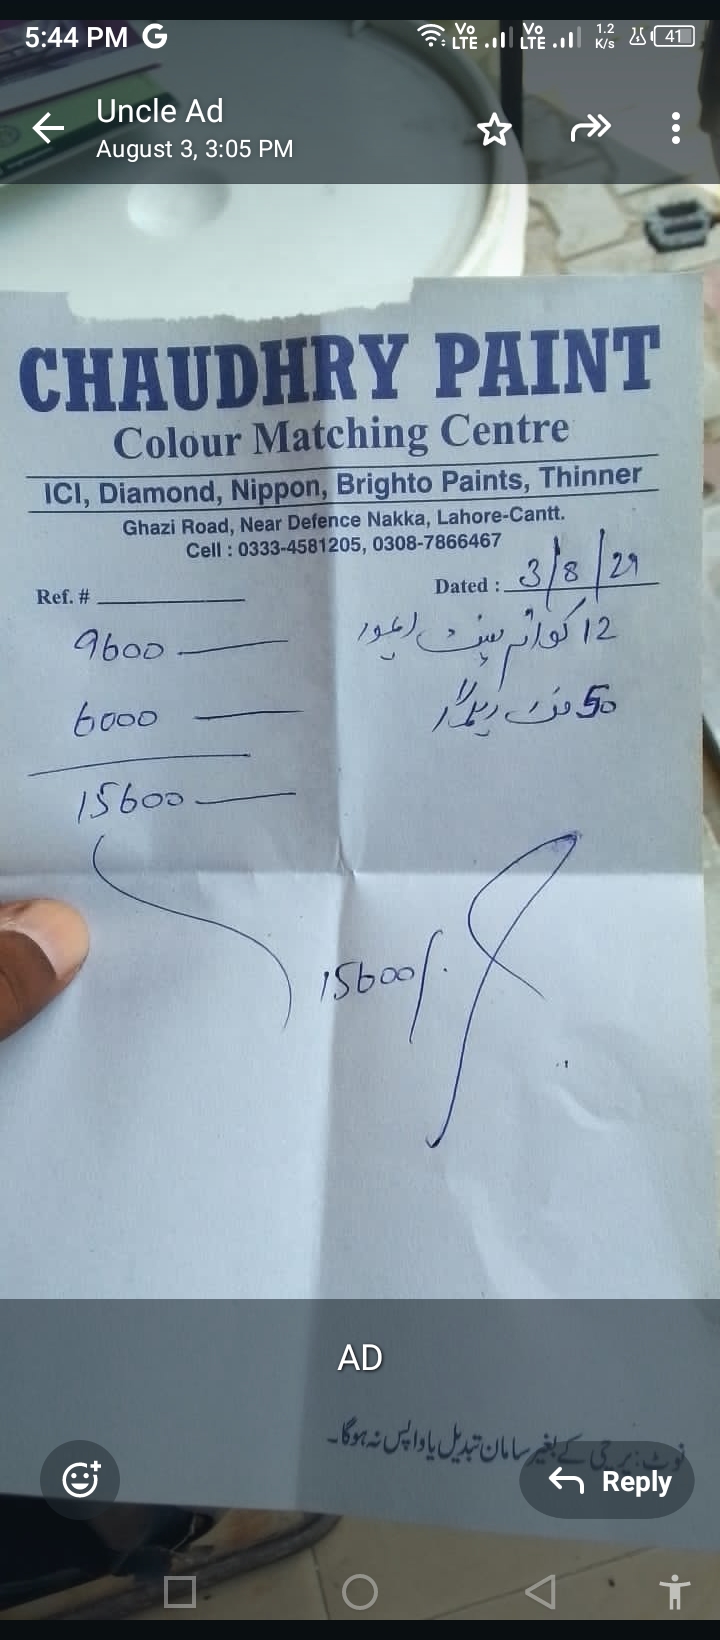 5:44 PM G
Vo LTE Vo LTE 1.2 K/s 41
Uncle Ad
August 3, 3:05 PM
CHAUDHRY PAINT
Colour Matching Centre
ICI, Diamond, Nippon, Brighto Paints, Thinner
Ghazi Road, Near Defence Nakka, Lahore-Cantt.
Cell : 0333-4581205, 0308-7866467
Ref. # Dated : 3/8/
12 کواٹر پینٹ
9600
50 فٹ
6000
15600
15600/.
AD
نوٹ: پرچی کے بغیر سامان تبدیل یا واپس نہ ہوگا۔
Reply